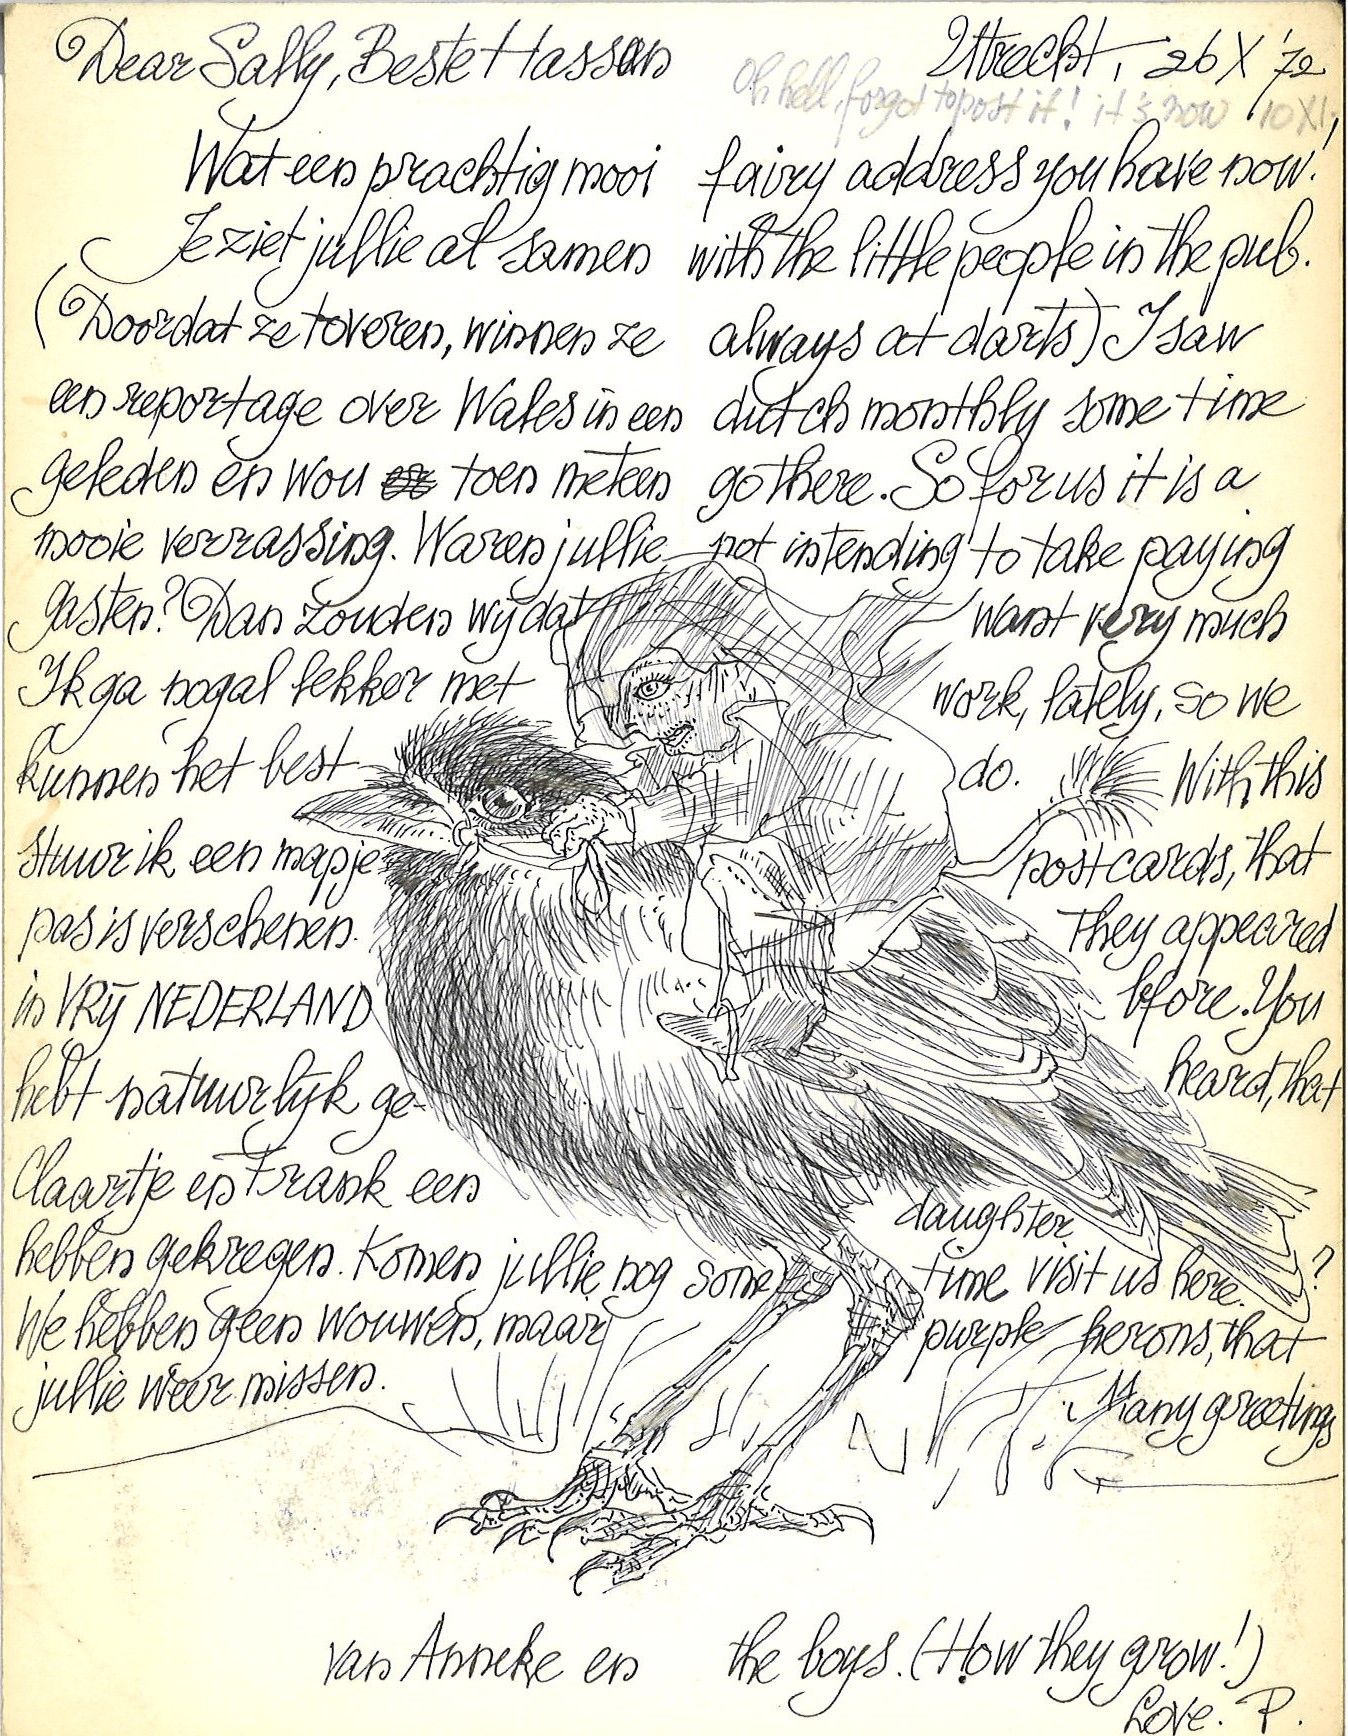 Dear Sally, Beste Hassan Utrecht, 26 X '72
Oh hell, forgot to post it! it's now 10 XI.
Wat een prachtig mooi fairy address you have now!
Je ziet jullie al samen with the little people in the pub.
(Doordat ze toveren, winnen ze always at darts) I saw
een reportage over Wales in een dutch monthly some time
geleden en wou toen meteen go there. So for us it is a
mooie verrassing. Waren jullie not intending to take paying
gasten? Dan zouden wij dat want very much
Ik ga nogal lekker met work, lately, so we
kunnen het best do. With this
stuur ik een mapje postcards, that
pas is verschenen. They appeared
in VRIJ NEDERLAND bfore. You
hebt natuurlijk ge- heard, that
Claartje en Frank een daughter
hebben gekregen. Komen jullie nog some time visit us here. ?
We hebben geen wouwen, maar purple herons, that
jullie weer missen. Many greetings
van Anneke en the boys. (How they grow!)
Love. P.